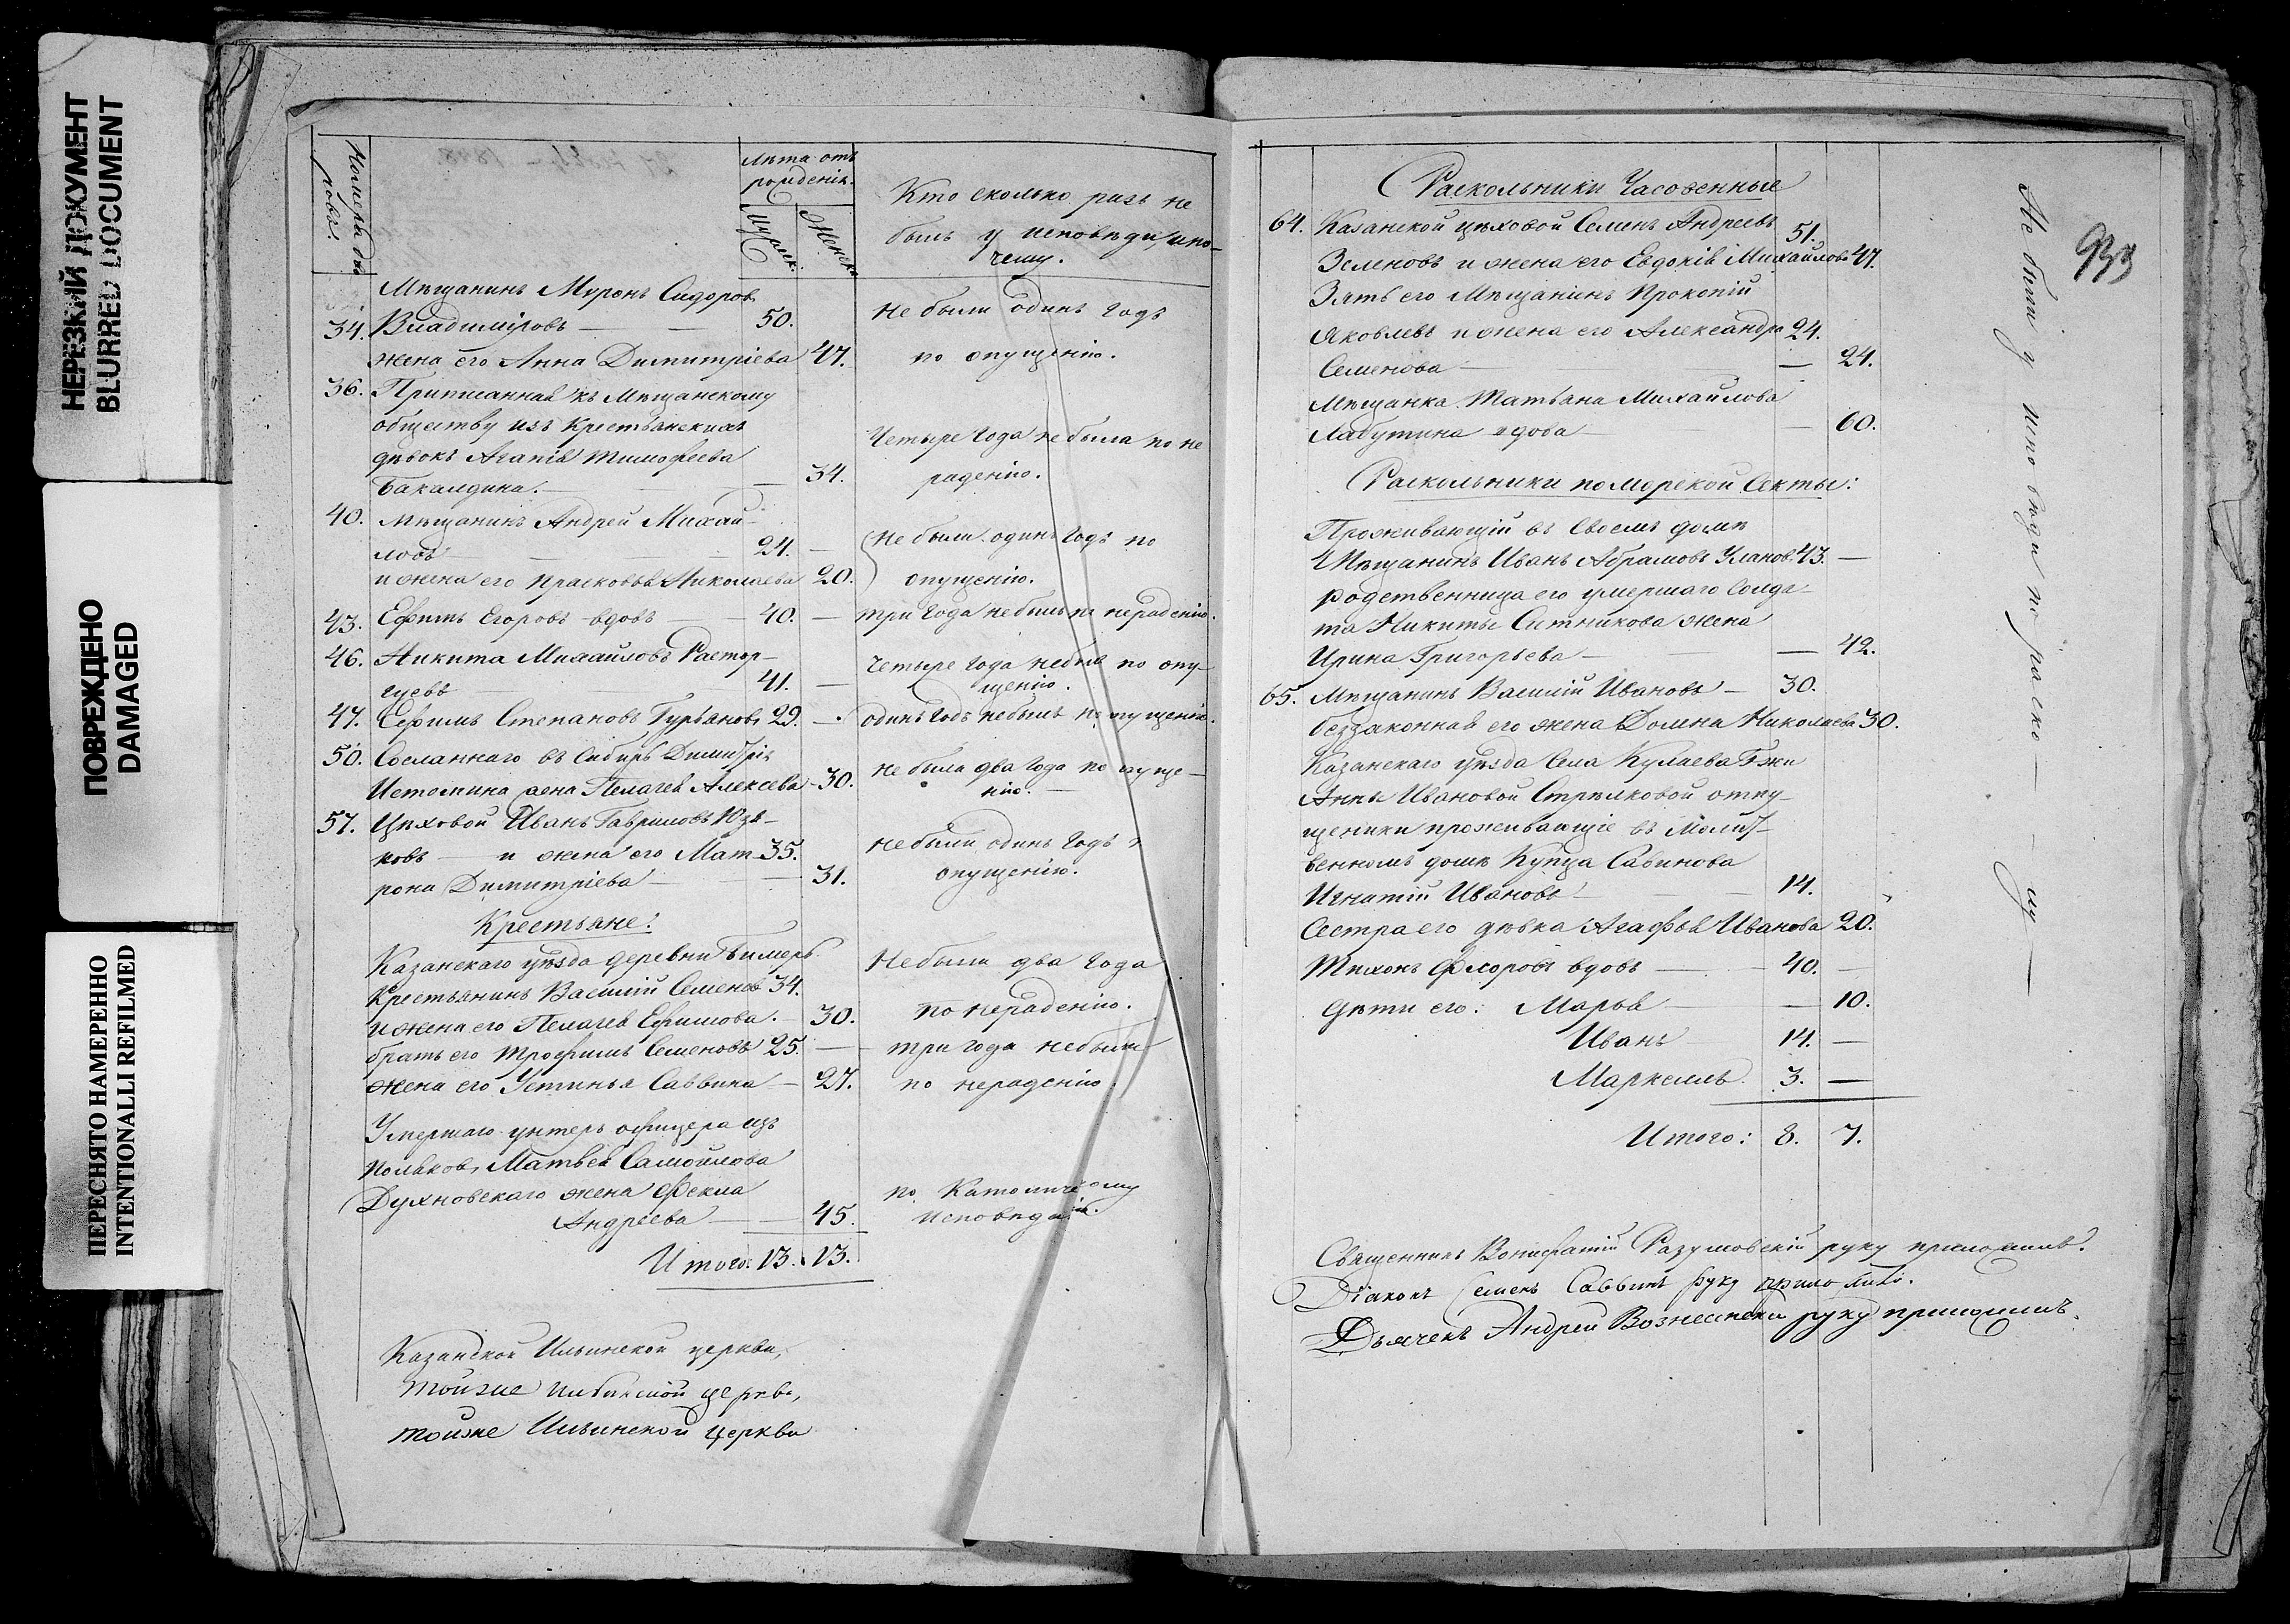 НЕРЕЗКИЙ ДОКУМЕНТ
BLURRED DOCUMENT
ПОВРЕЖДЕНО
DAMAGED
ПЕРЕСНЯТО НАМЕРЕННО
INTENTIONALLI REFILMED
Номера до-
мовъ.
Лѣта отъ
рожденія.
Мужск.
Женск.
Кто сколько разъ не
былъ у исповѣди, и по-
чему.
Мѣщанинъ Миронъ Сидоровъ
34. Владиміровъ — — 50.
жена его Анна Димитріева 47.
Не были одинъ годъ
по опущенію.
36. Приписанная къ Мѣщанскому
обществу изъ Крестьянскихъ
дѣвокъ Агапія Тимофеева
Бакалдина. — — 34.
Четыре года не была по не
радению.
40. Мѣщанинъ Андрей Михай-
ловъ — 24. —
и жена его Прасковья Николаева 20.
Не были одинъ годъ по
опущенію.
43. Ефимъ Егоровъ вдовъ — 40. — три года не былъ по нерадению.
46. Никита Михайловъ Растор-
гуевъ 41. —
четыре года не былъ по опу-
щенію.
47. Ефимъ Степановъ Гурьяновъ 29. — одинъ годъ не былъ по опущенію.
50. Сосланнаго въ Сибирь Димитрія
Истомина жена Пелагея Алексеева 30.
не была два года по опуще-
нію. —
57. Цѣховой Иванъ Гавриловъ
ковъ — и жена его Мат- 35.
рона Димитріева — — 31.
не были одинъ годъ
опущенію.
Крестьяне:
Казанскаго уѣзда деревни Бимерь
Крестьянинъ Василій Семеновъ 34.
и жена его Пелагея Ефимова. — 30.
Не были два года
по нерадению.
братъ его Трофимъ Семеновъ 25. —
жена его Устинья Саввина — 27.
три года не были
по нерадению.
Умершаго унтеръ офицера изъ
поляковъ, Матвея Самойлова
Духновскаго жена Фекла
Андреева — — 45.
по Католическому
исповѣданію.
Итого: 13. 13.
Казанской Ильинской церкви,
тойже Ильинской церкви,
тойже Ильинской церкви
933
Раскольники Часовенные
64. Казанской цѣховой Семенъ Андреевъ 51.
Зеленовъ и жена его Евдокія Михайлова 47.
Зять его Мѣщанинъ Прокопій
Яковлевъ и жена его Александра 24.
Семенова — — 24.
Мѣщанка Татьяна Михайлова
Лабутина вдова — — 60.
Раскольники поморской Секты:
Проживающій въ своемъ домѣ
Мѣщанинъ Иванъ Абрамовъ Улановъ 43. —
родственница его умершаго Солда-
та Никиты Ситникова жена
Ирина Григорьева — — 42.
65. Мѣщанинъ Василій Ивановъ — 30.
беззаконная его жена Домна Николаева 30.
Казанскаго уѣзда Села Кулаева Гжи
Анны Ивановой Стрѣлковой отпу-
щеники проживающіе въ Молит-
венномъ домѣ Купца Савинова
Игнатій Ивановъ — — 14.
Сестра его дѣвка Агафья Иванова 20.
Тихонъ Флоровъ вдовъ — 40. —
дѣти его: Марья — — 10.
Иванъ 14. —
Маркеллъ. 3. —
Итого: 8. 7.
Не были у исповѣди по раско —
— лу —
Священникъ Вонифатій Разумовскій руку приложилъ.
Діаконъ Семенъ Саввинъ руку приложилъ.
Дьячекъ Андрей Вознесенский руку приложилъ.